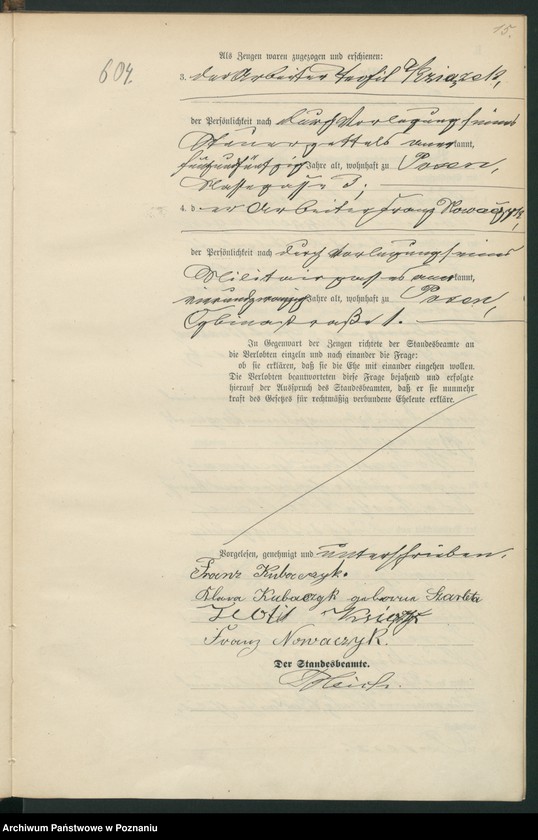 15.
604.
Als Zeugen waren zugezogen und erschienen:
3. der Arbeiter Teofil Książek,
der Persönlichkeit nach durch Vorlegung seines
Steuerzettels anerkannt,
fünfundfünfzig Jahre alt, wohnhaft zu Posen,
3;
4. der Arbeiter Franz Nowaczyk,
der Persönlichkeit nach durch Vorlegung seines
Militairpasses anerkannt,
vierundzwanzig Jahre alt, wohnhaft zu Posen,
Cybinastraße 1.
In Gegenwart der Zeugen richtete der Standesbeamte an
die Verlobten einzeln und nach einander die Frage:
ob sie erklären, daß sie die Ehe mit einander eingehen wollen.
Die Verlobten beantworteten diese Frage bejahend und erfolgte
hierauf der Ausspruch des Standesbeamten, daß er sie nunmehr
kraft des Gesetzes für rechtmäßig verbundene Eheleute erkläre.
Vorgelesen, genehmigt und unterschrieben.
Franz Kubaczyk.
Klara Kubaczyk geborene
Teofil
Franz Nowaczyk.
Der Standesbeamte.
Archiwum Państwowe w Poznaniu